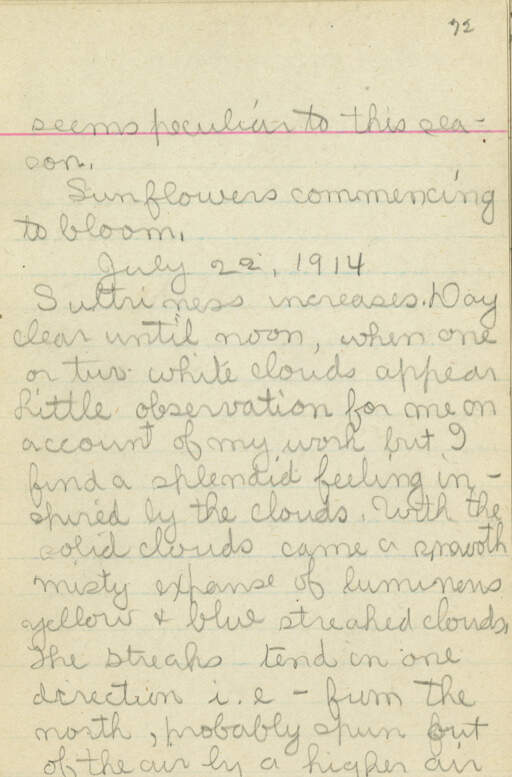 72
seems peculiar to this sea-
son.
Sunflowers commencing
to bloom.
July 22, 1914
Sultriness increases. Day
clear until noon, when one
or two white clouds appear
Little observation for me on
account of my work but I
find a splendid feeling in-
spired by the clouds. With the
solid clouds came a smooth
misty expanse of luminous
yellow & blue streaked clouds,
The streaks tend in one
direction i.e - from the
north, probably spun out
of the air by a higher air